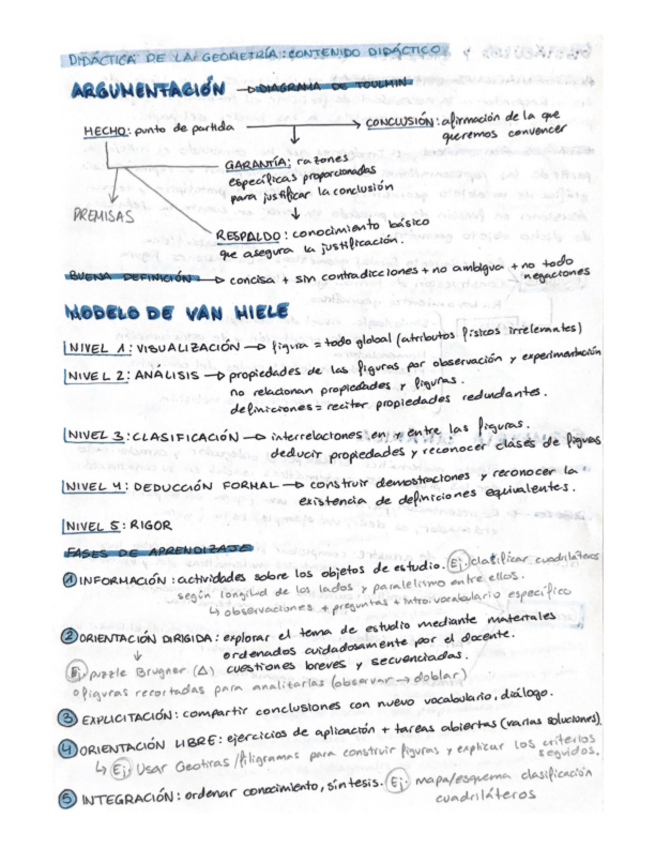 DIDÁCTICA DE LA GEOMETRÍA: CONTENIDO DIDÁCTICO
ARGUMENTACIÓN → DIAGRAMA DE TOULMIN
HECHO: punto de partida → CONCLUSIÓN: afirmación de la que
queremos convencer
GARANTÍA: razones
específicas proporcionadas
para justificar la conclusión
PREMISAS
RESPALDO: conocimiento básico
que asegura la justificación.
BUENA DEFINICIÓN → concisa + sin contradicciones + no ambigua + no todo
negaciones
MODELO DE VAN HIELE
NIVEL 1: VISUALIZACIÓN → figura = todo global (atributos físicos irrelevantes)
NIVEL 2: ANÁLISIS → propiedades de las figuras por observación y experimentación
no relacionan propiedades y figuras.
definiciones = recitar propiedades redundantes.
NIVEL 3: CLASIFICACIÓN → interrelaciones en y entre las figuras.
deducir propiedades y reconocer clases de figuras
NIVEL 4: DEDUCCIÓN FORMAL → construir demostraciones y reconocer la
existencia de definiciones equivalentes.
NIVEL 5: RIGOR
FASES DE APRENDIZAJE
1 INFORMACIÓN: actividades sobre los objetos de estudio. Ej. clasificar cuadriláteros
según longitud de los lados y paralelismo entre ellos.
↳ observaciones + preguntas + introd. vocabulario específico
2 ORIENTACIÓN DIRIGIDA: explorar el tema de estudio mediante materiales
ordenados cuidadosamente por el docente.
Ej. puzzle Brugner (△) cuestiones breves y secuenciadas.
o figuras recortadas para analizarlas (observar → doblar)
3 EXPLICITACIÓN: compartir conclusiones con nuevo vocabulario, diálogo.
4 ORIENTACIÓN LIBRE: ejercicios de aplicación + tareas abiertas (varias soluciones)
↳ Ej. Usar Geotiras / filigramas para construir figuras y explicar los criterios
seguidos.
5 INTEGRACIÓN: ordenar conocimiento, síntesis. Ej. mapa/esquema clasificación
cuadriláteros